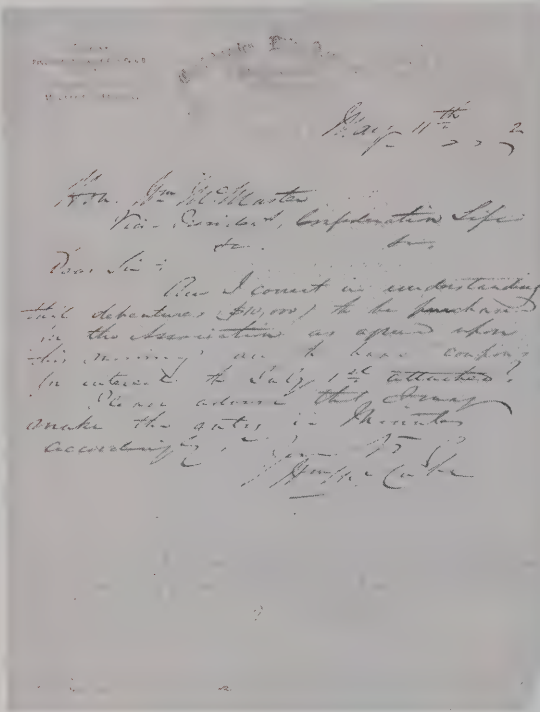 May 11th
Hon. Wm McMaster
Vice President, Confederation Life
Dear Sir:
Am I correct in understanding
that debentures $10,000 to be purchased
in the Association as agreed upon
this morning are to have coupons
for interest to July 1st attached?
Please advise that I may
make the entry in Minutes
accordingly.